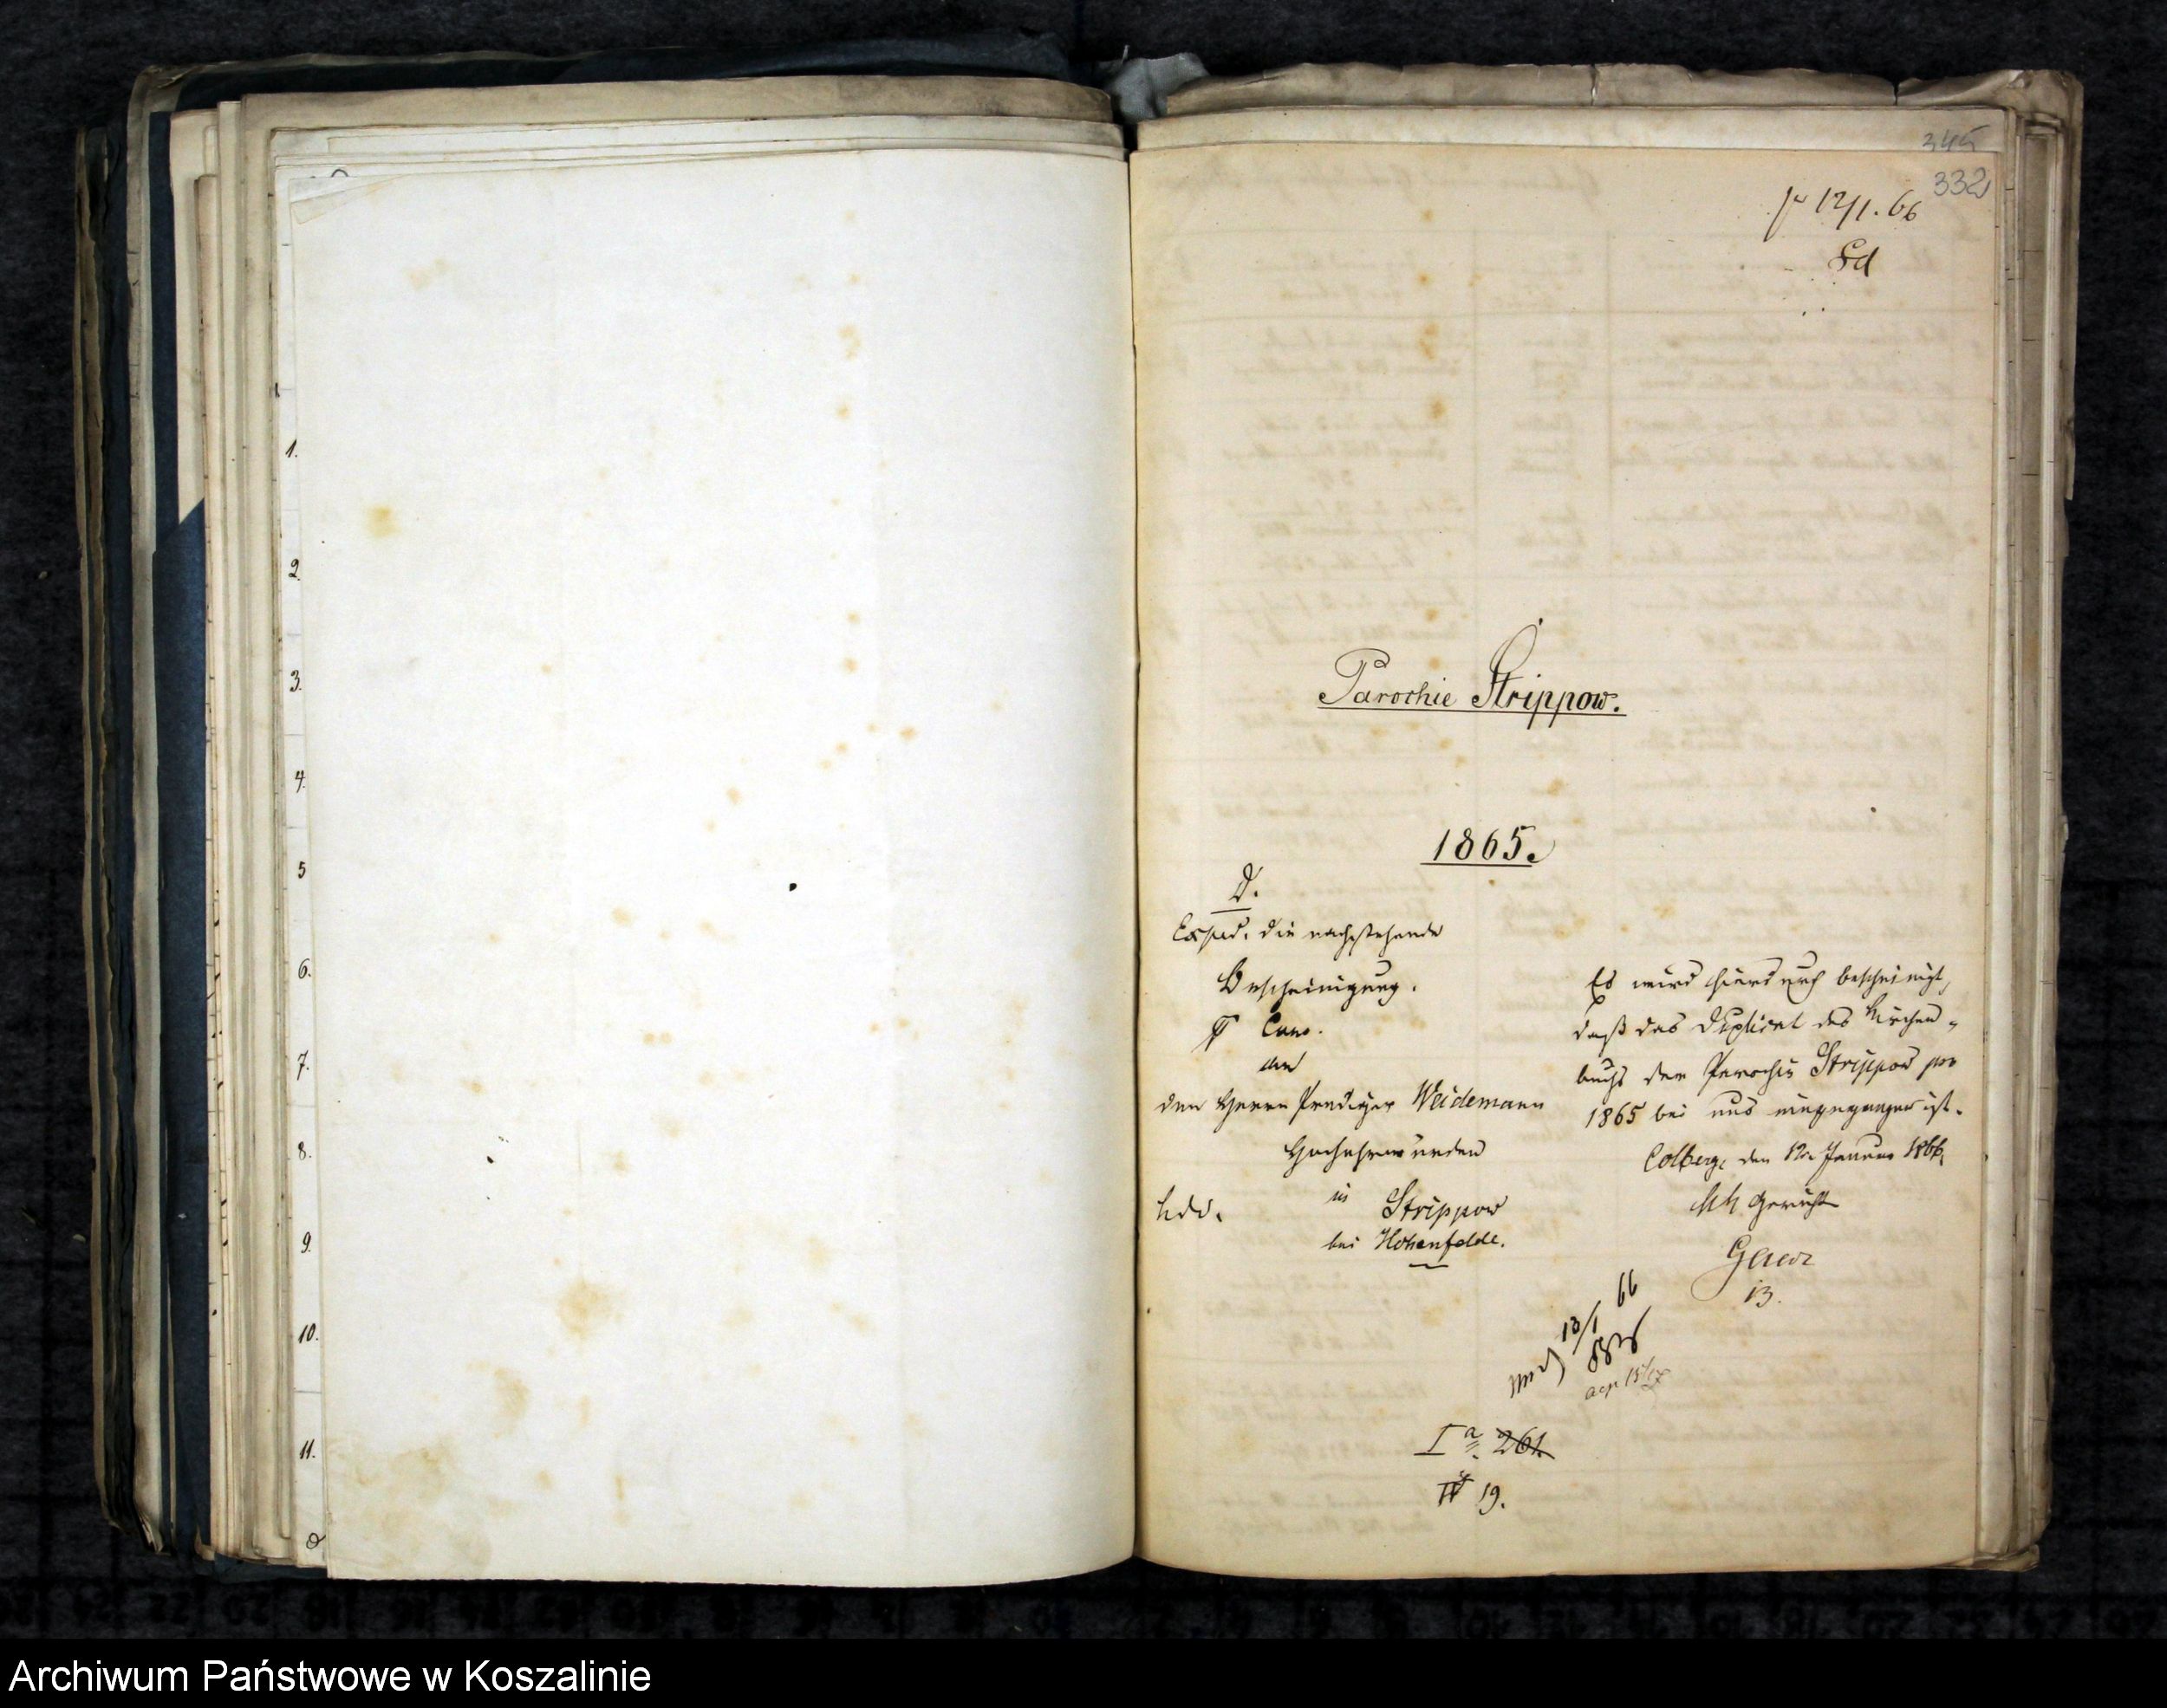 1.
2.
3.
4.
5
6.
7.
8.
9.
10.
11.
345
332
pr 12/1. 66
Parochie Strippow.
1865.
D.
Exped. die nachstehende
Bescheinigung.
an
den Herrn Prediger Weidemann
Hochehrwürden
in Strippow
bei Hohenfelde.
Es wird hierdurch bescheinigt,
daß das Duplicat des Kirchen-
buchs der Parochie Strippow pro
1865 bei uns eingegangen ist.
Colberg, den 12 Januar 1866.
Gericht
13.
13/1 66
I a 261.
IV 19.
Archiwum Państwowe w Koszalinie